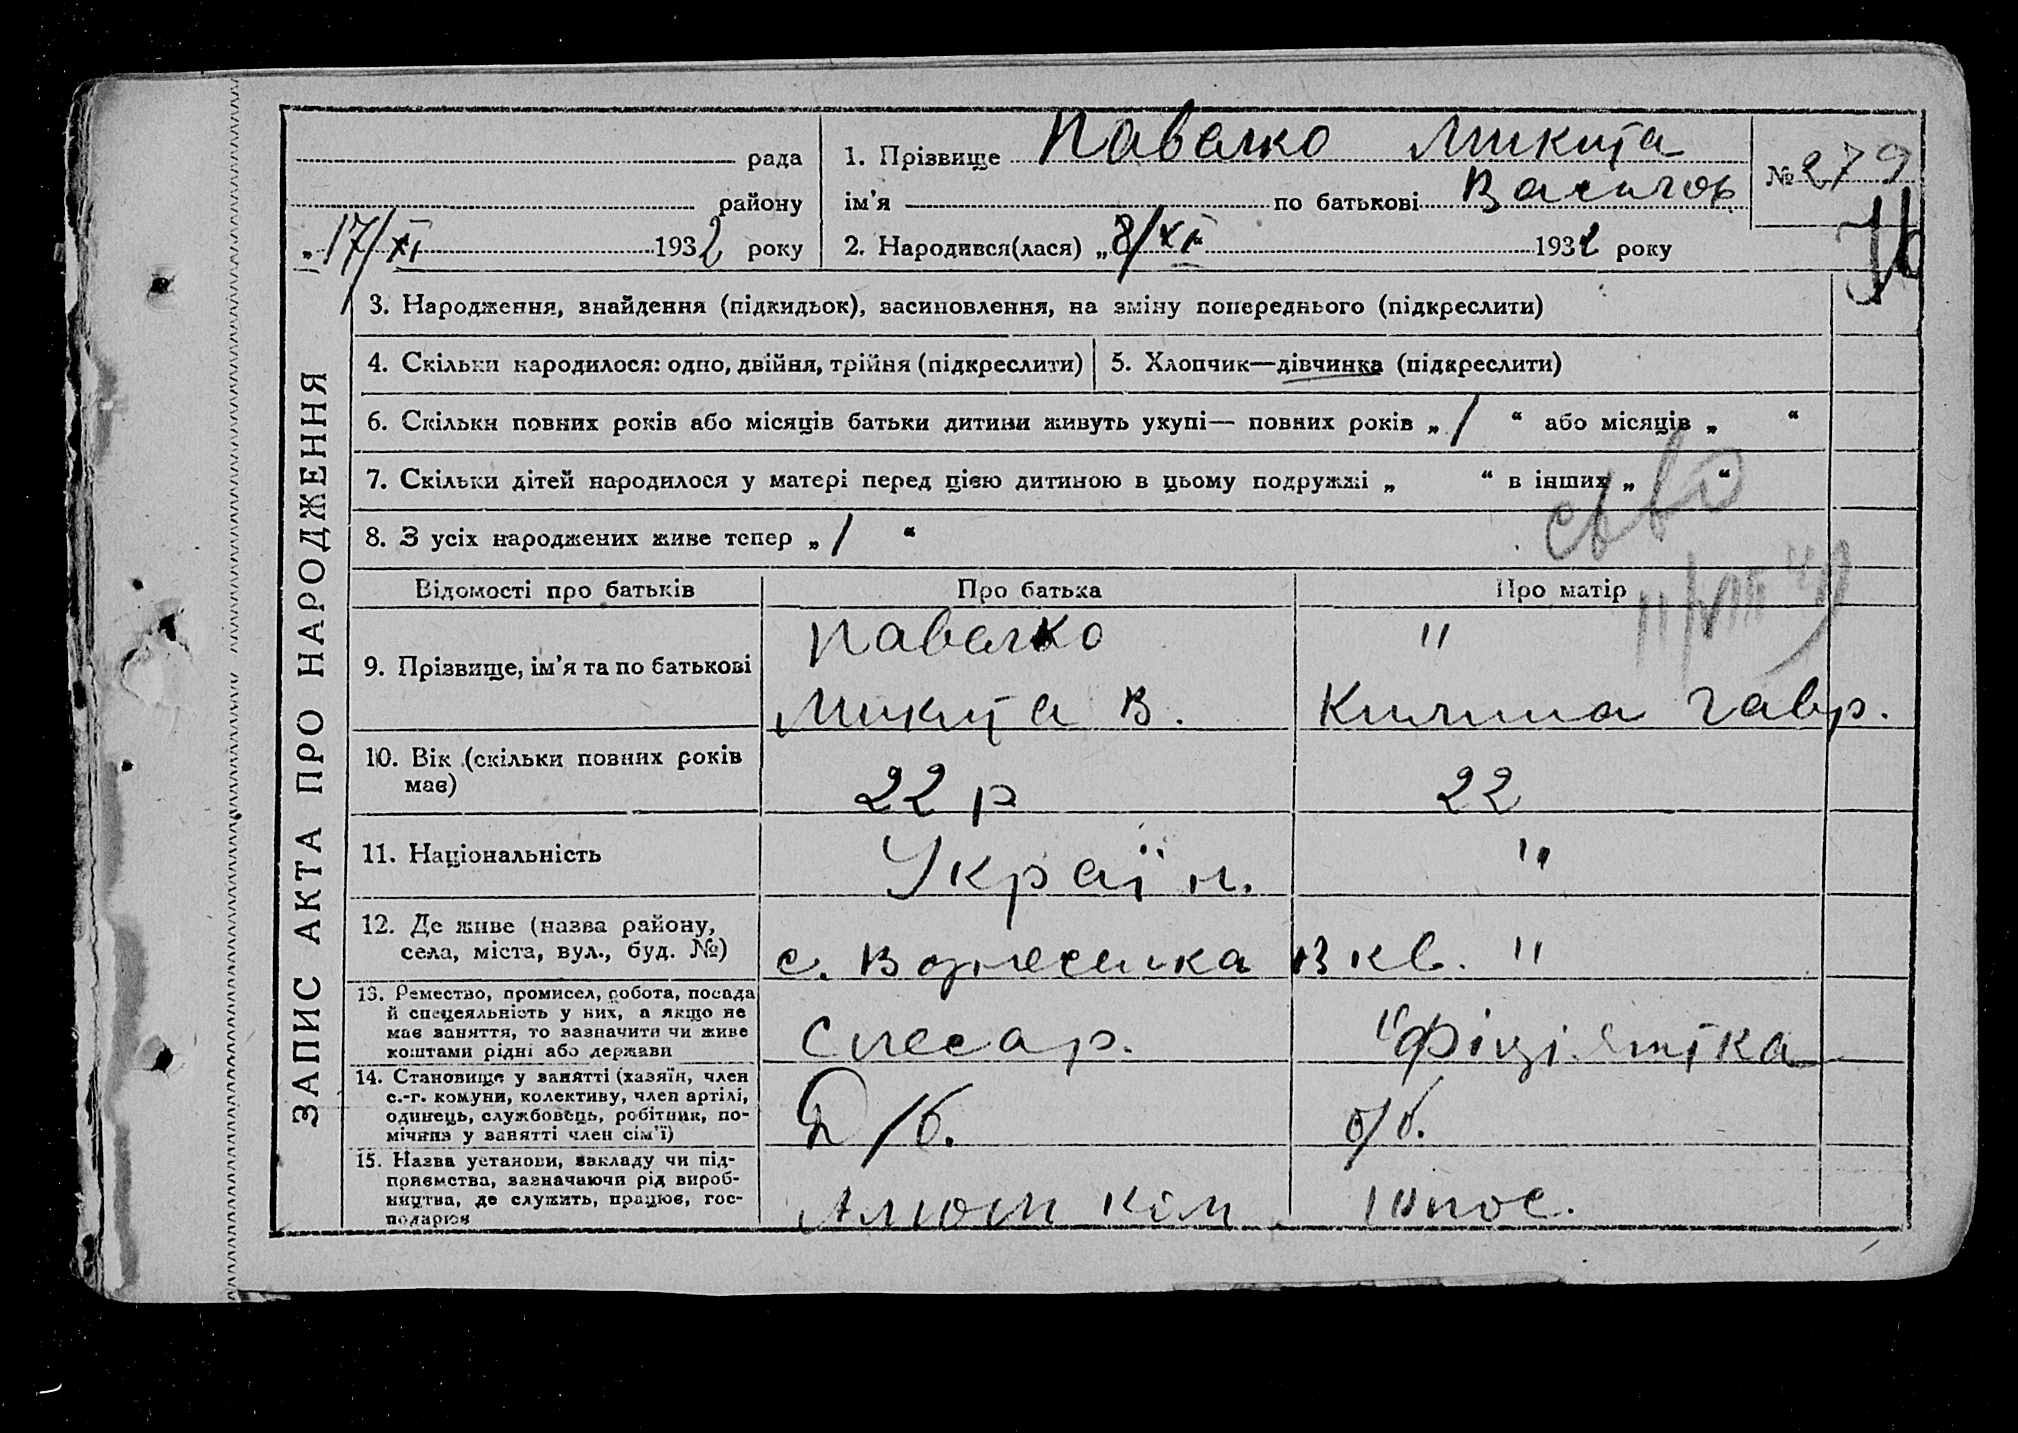 рада
району
„17/XI 1932 року
1. Прізвище Павелко Микита
ім’я по батькові Васильов
2. Народився(лася) „8/XI 1932 року
№ 279
ЗАПИС АКТА ПРО НАРОДЖЕННЯ
3. Народження, знайдення (підкидьок), засиновлення, на зміну попереднього (підкреслити)
4. Скільки народилося: одно, двійня, трійня (підкреслити)
5. Хлопчик—дівчинка (підкреслити)
6. Скільки повних років або місяців батьки дитини живуть укупі— повних років „ 1 “ або місяців „ “
7. Скільки дітей народилося у матері перед цією дитиною в цьому подружжі „ “ в інших „ “
8. З усіх народжених живе тепер „ 1 “
св во
11/VIII 49
Відомості про батьків
Про батька
Про матір
9. Прізвище, ім’я та по батькові
Павелко
Микита В.
"
Килина Гавр.
10. Вік (скільки повних років
має)
22 р
22
11. Національність
Україн.
"
12. Де живе (назва району,
села, міста, вул., буд. №)
с. Вознесенка В кв. "
13. Ремество, промисел, робота, посада
й спецеяльність у них, а якщо не
має заняття, то зазначити чи живе
коштами рідні або держави
Слесар.
14. Становище у занятті (хазяїн, член
с.-г. комуни, колективу, член артілі,
одинець, службовець, робітник, по-
мічний у занятті член сім’ї)
/б.
б/б.
15. Назва установи, закладу чи під-
приємства, зазначаючи рід вироб-
ництва, де служить, працює, гос-
подарює
Алюм ком.
10 пос.